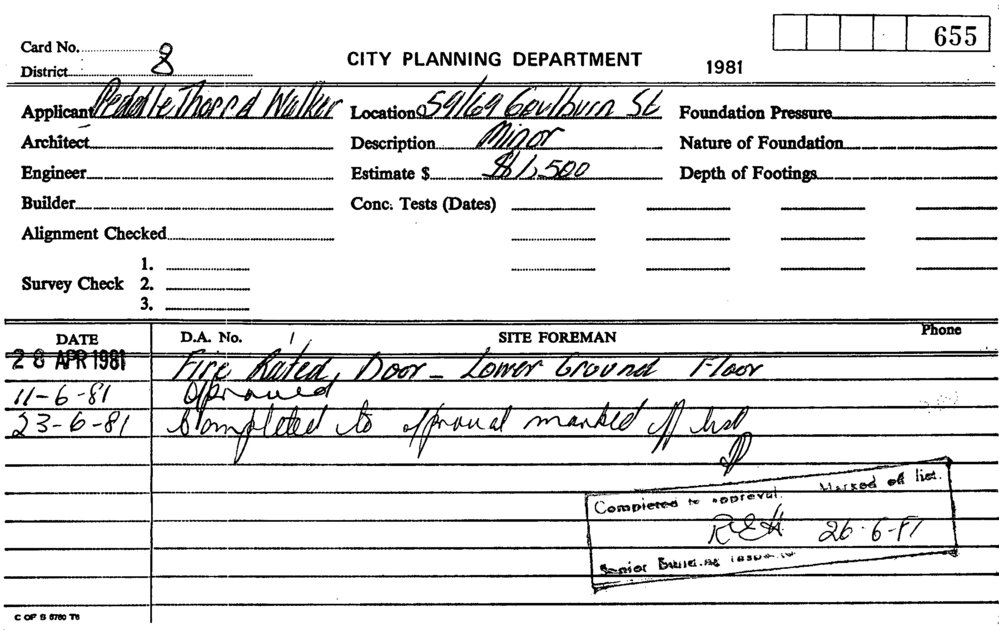 655
Card No. 8
District
CITY PLANNING DEPARTMENT 1981
Applicant Peddle Thorp & Walker Location 59/69 Goulburn St Foundation Pressure
Architect Description Minor Nature of Foundation
Engineer Estimate $ $1,500 Depth of Footings
Builder Conc. Tests (Dates)
Alignment Checked
1.
Survey Check 2.
3.
DATE D.A. No. SITE FOREMAN Phone
28 APR 1981 Fire Rated Door - Lower Ground Floor
11-6-81 Approved
23-6-81 Completed to approval marked off list
Completed to approval. Marked off list.
26-6-81
Senior Building Inspector
C OF S 8780 T6